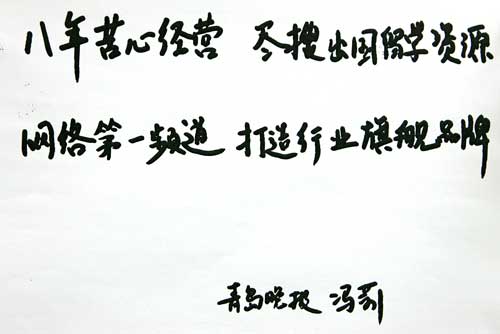 八年苦心经营 尽搜出国留学资源
网络第一频道 打造行业旗舰品牌
青岛晚报 冯